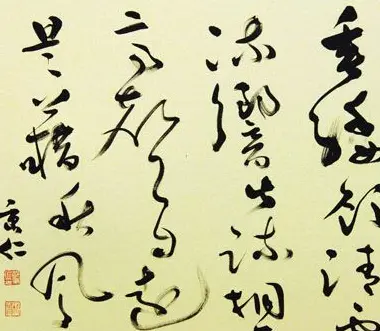 垂緌飲清露
流響出疏桐
高聲自遠
是藉秋風